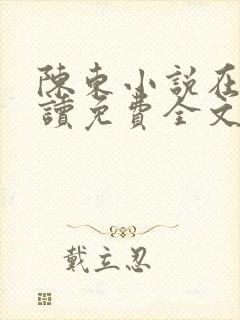 陳東小說在
讀免費全文
戴立忍